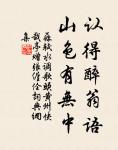 认得醉翁语
山色有无中
苏轼水调歌头黄州快
哉亭赠张偓佺词典网
集